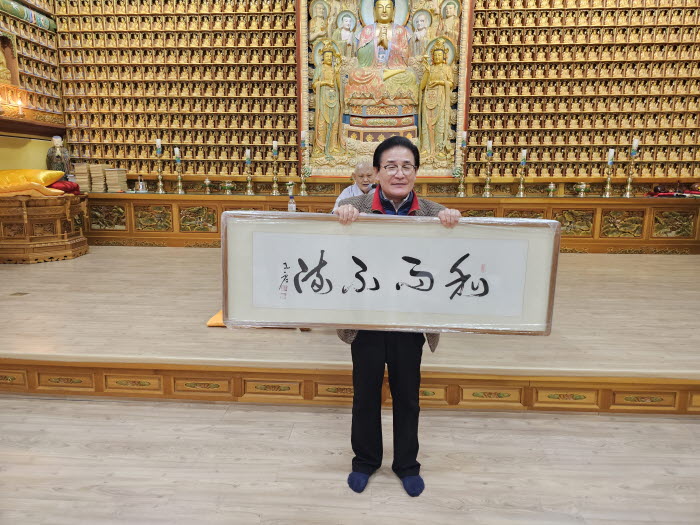 和而不流